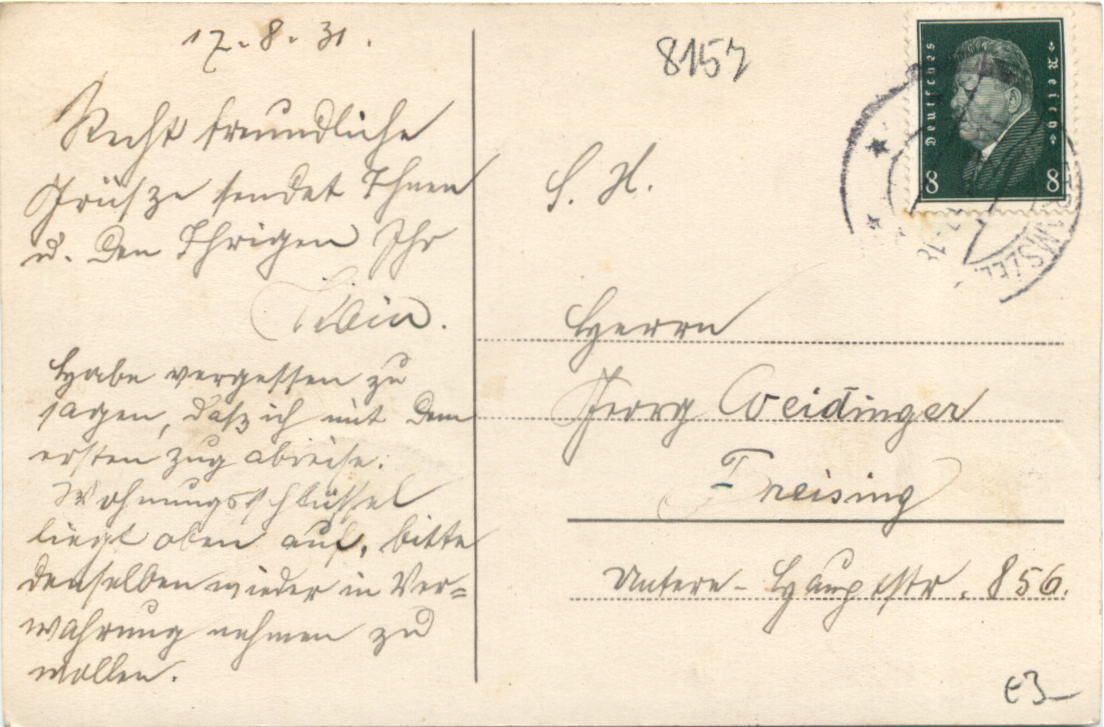 17.8.31.
Recht freundliche
Grüsze sendet Ihnen
u. den Ihrigen Ihr
Habe vergessen zu
sagen, dasz ich mit dem
ersten Zug abreise.
Wohnungsschlüssel
liegt oben auf, bitte
denselben wieder in Ver=
wahrung nehmen zu
wollen.
8157
Deutsches Reich
8 8
S. H.
Herrn
Georg Weidinger
Freising
Untere-Hauptstr. 856.
€3-